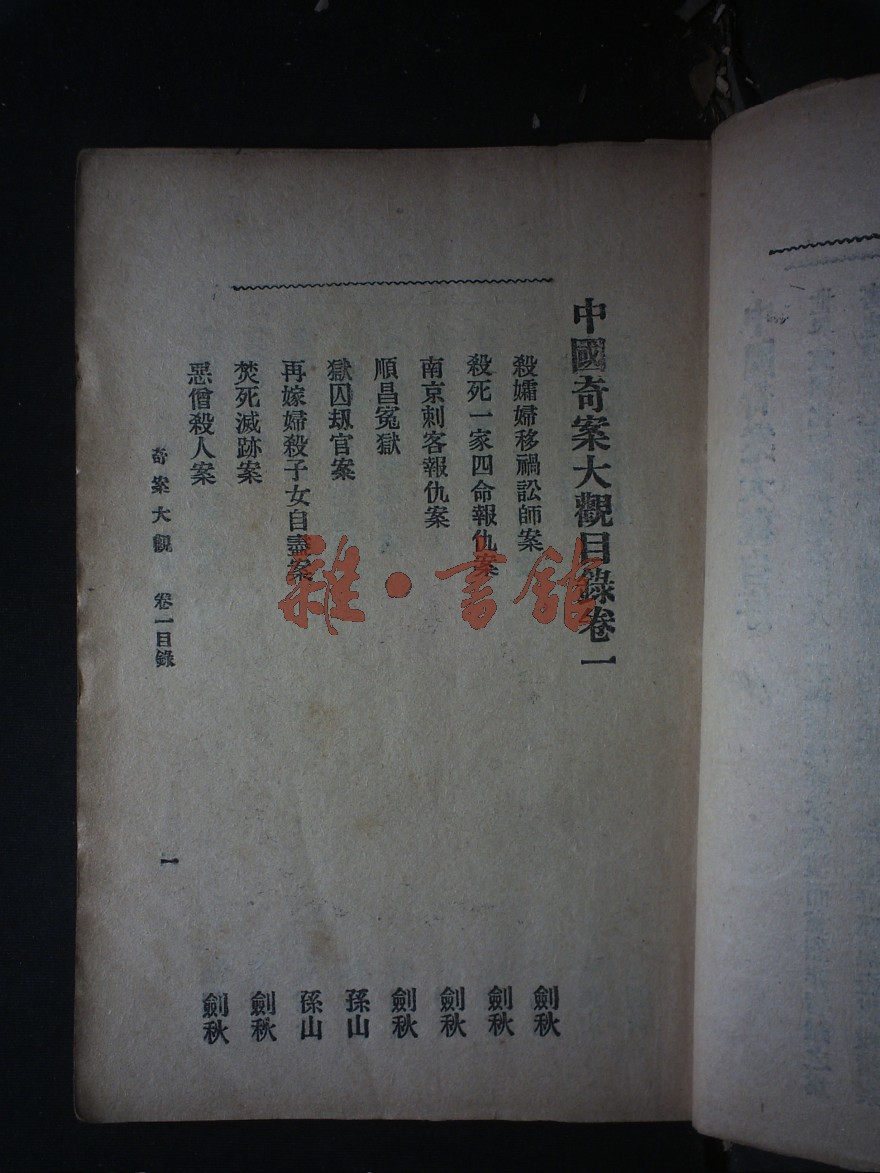 中國奇案大觀目錄卷一
殺孀婦移禍訟師案 劍秋
殺死一家四命報仇案 劍秋
南京刺客報仇案 劍秋
順昌冤獄 劍秋
獄囚刼官案 孫山
再嫁婦殺子女自盡案 孫山
焚死滅跡案 劍秋
惡僧殺人案 劍秋
奇案大觀 卷一目錄 一
雜·書館